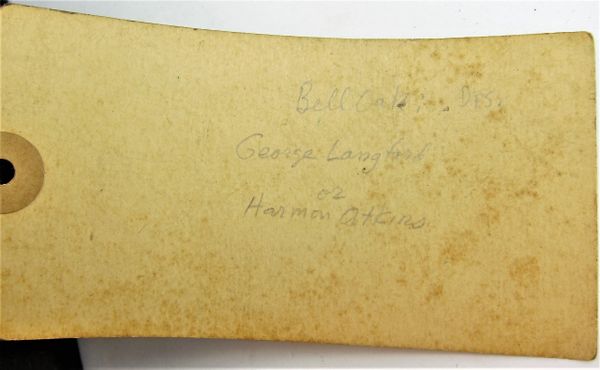 Bell
George Langford
or
Harmon Atkins